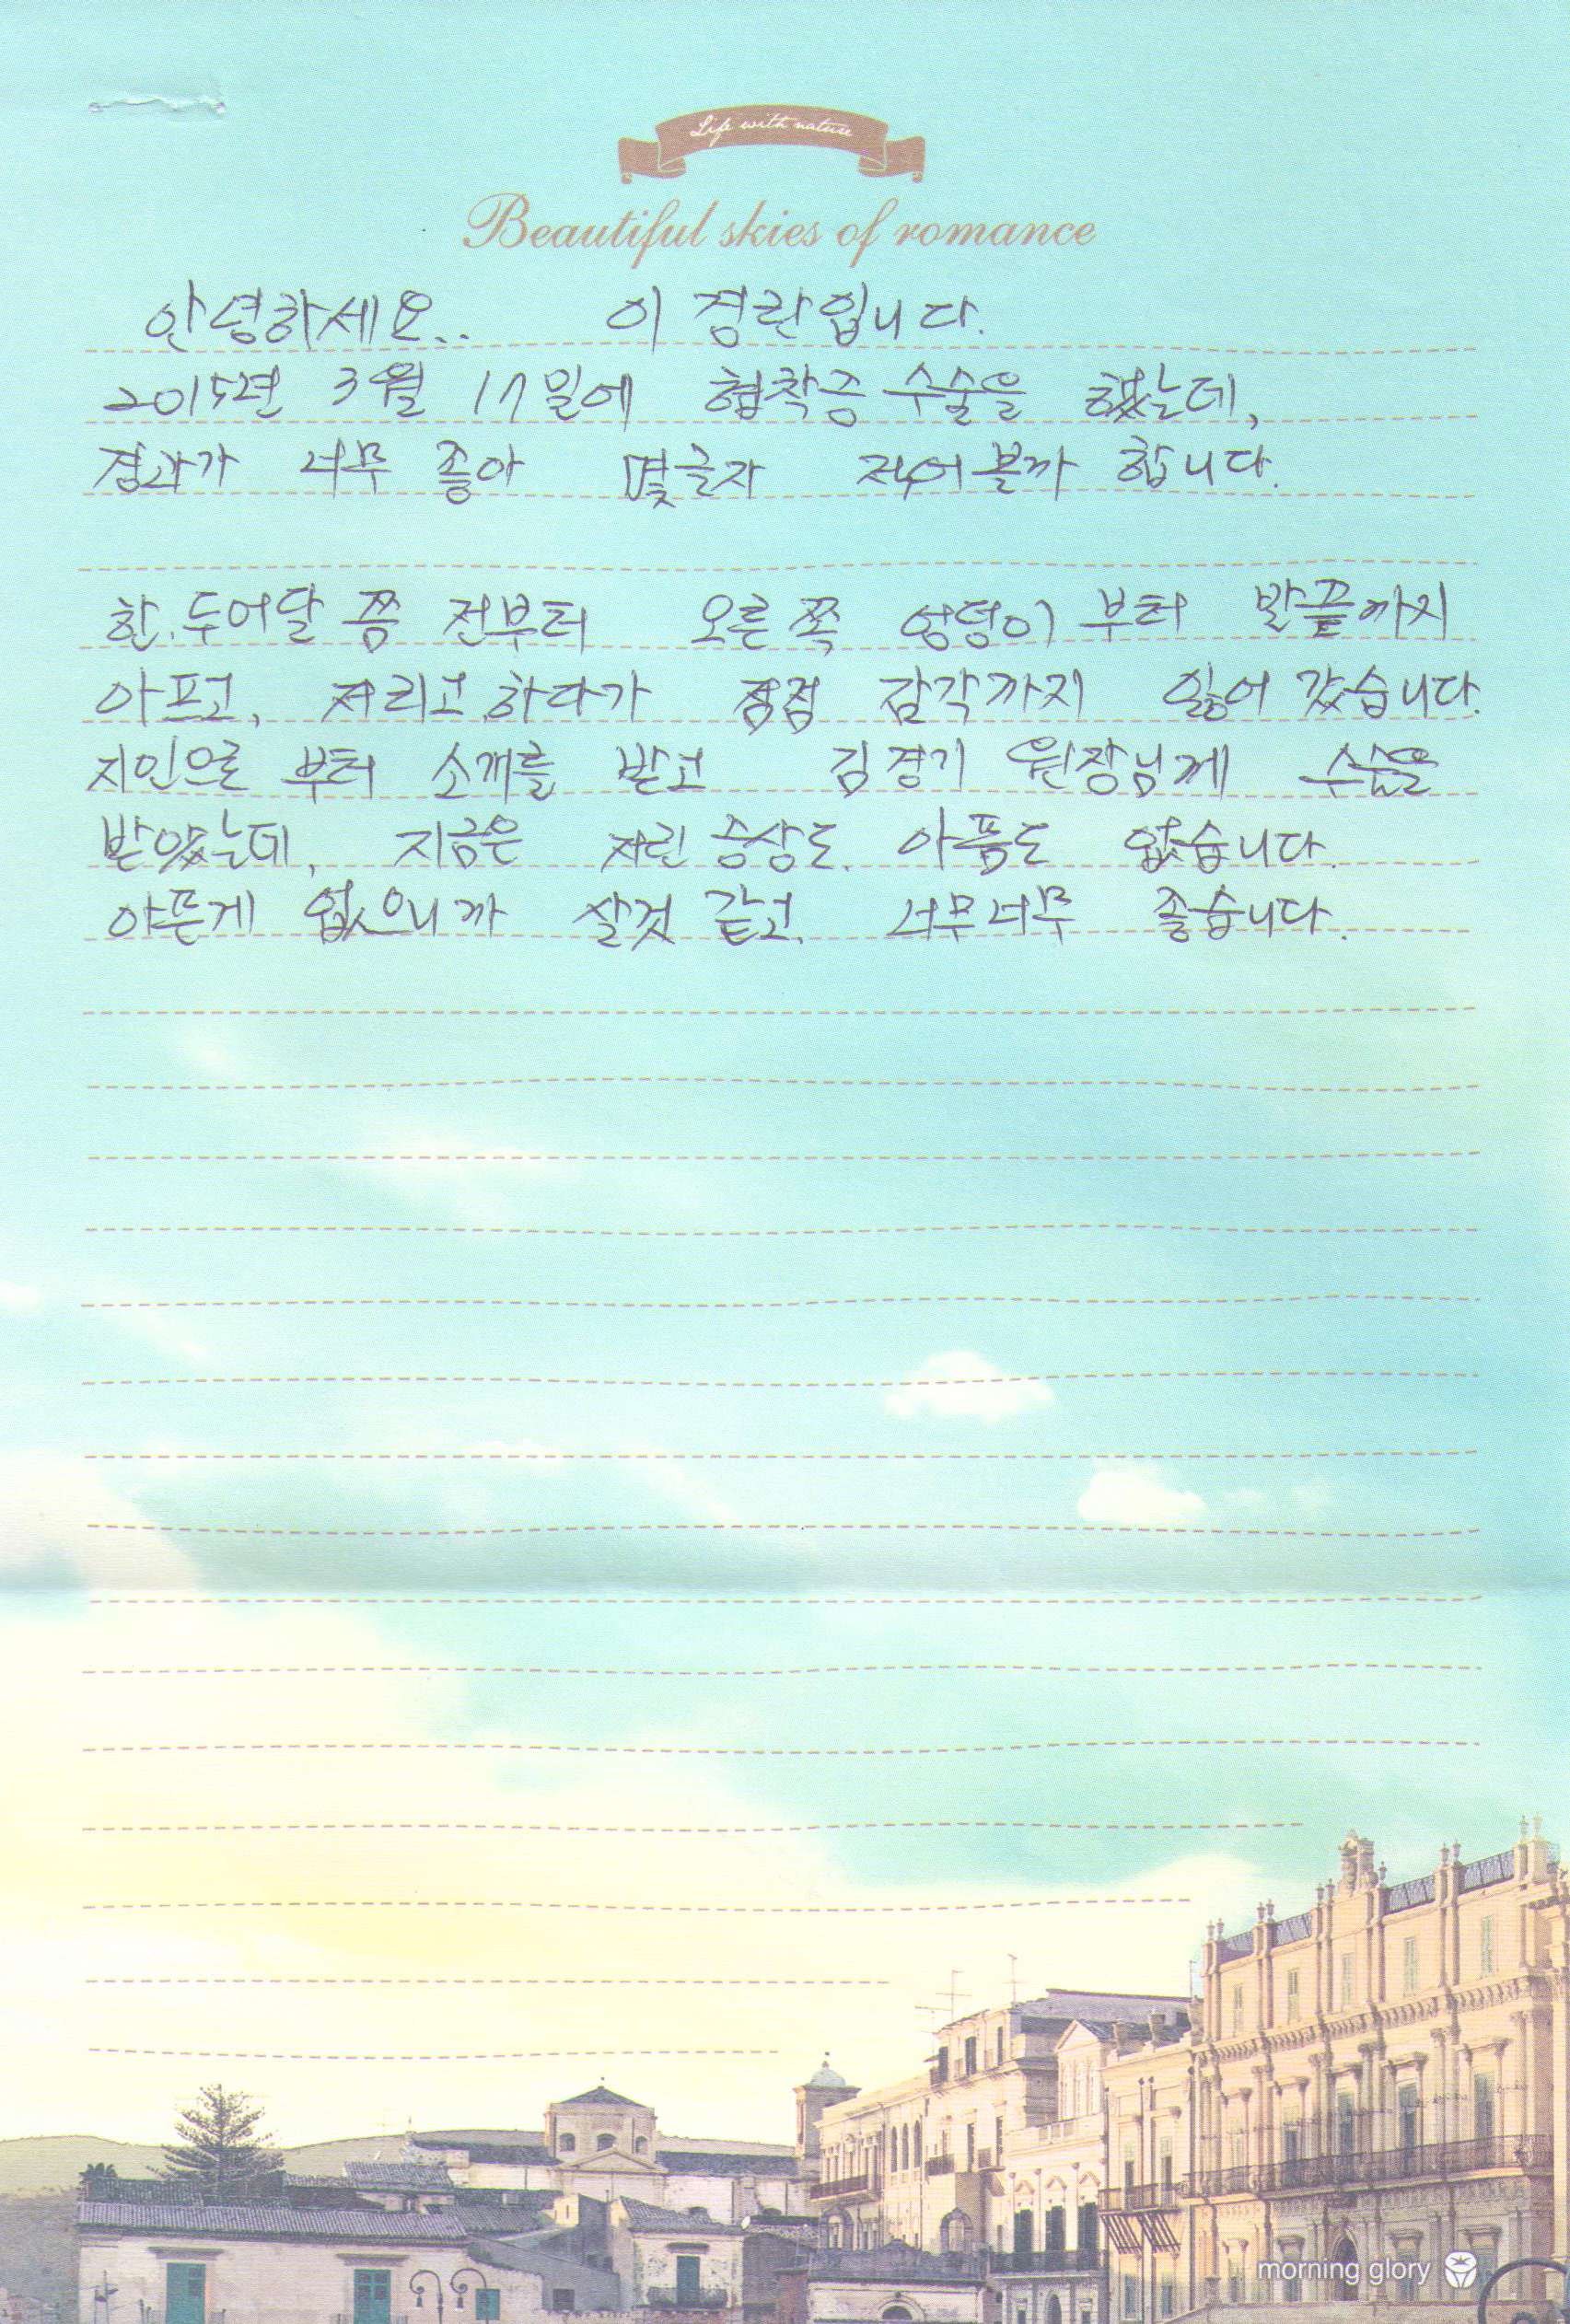 Life with nature
Beautiful skies of romance
안녕하세요.. 이경란입니다.
2015년 3월 17일에 협착증 수술을 했는데,
결과가 너무 좋아 몇글자 적어볼까 합니다.
한.두어달 쯤 전부터 오른쪽 엉덩이부터 발끝까지
아프고, 저리고 하다가 점점 감각까지 잃어 갔습니다.
지인으로 부터 소개를 받고 김경기 원장님께 수술을
받았는데, 지금은 저린 증상도. 아픔도 없습니다.
아픈게 없으니까 살것 같고. 너무너무 좋습니다.
morning glory